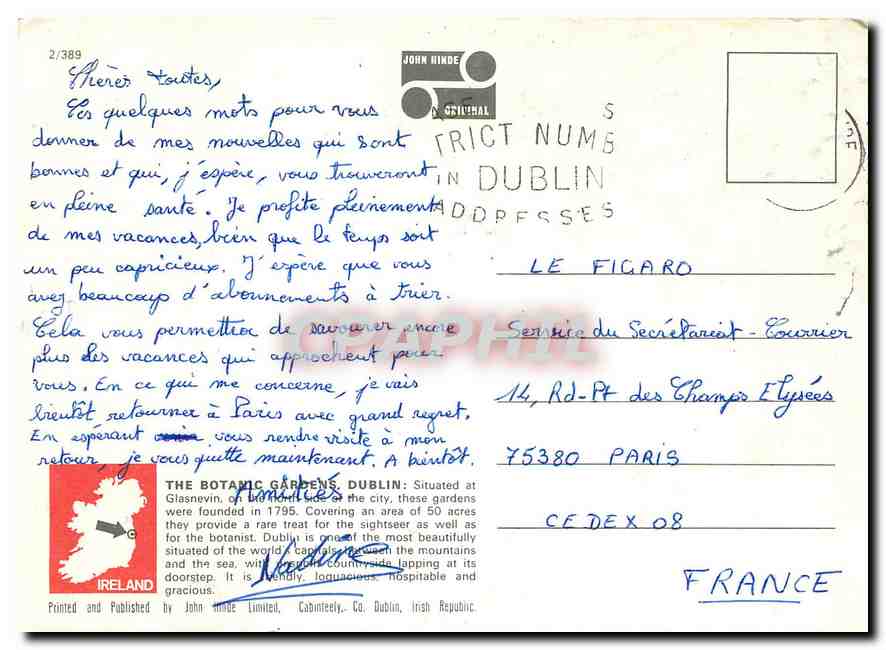 2/389
JOHN HINDE
ORIGINAL
TRICT NUMB
IN DUBLIN
ADDRESSES
Chères toutes,
Ces quelques mots pour vous
donner de mes nouvelles qui sont
bonnes et qui, j'espère, vous trouveront
en pleine santé. Je profite pleinement
de mes vacances, bien que le temps soit
un peu capricieux. J'espère que vous
avez beaucoup d'abonnements à trier.
Cela vous permettra de savourer encore
plus les vacances qui approchent pour
vous. En ce qui me concerne, je vais
bientôt retourner à Paris avec grand regret.
En espérant vous rendre visite à mon
retour, je vous quitte maintenant. A bientôt.
Amitiés
Nadine
LE FIGARO
Service du Secrétariat - Courrier
14, Rd-Pt des Champs Elysées
75380 PARIS
CEDEX 08
FRANCE
CPAPHIL
IRELAND
THE BOTANIC GARDENS, DUBLIN: Situated at
Glasnevin, on the north side of the city, these gardens
were founded in 1795. Covering an area of 50 acres
they provide a rare treat for the sightseer as well as
for the botanist. Dublin is one of the most beautifully
situated of the world's capitals, between the mountains
and the sea, with countryside lapping at its
doorstep. It is friendly, loquacious, hospitable and
gracious.
Printed and Published by John Hinde Limited, Cabinteely, Co. Dublin, Irish Republic.